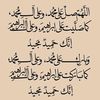 اللهم صل على محمد وعلى آل محمد
كما صليت على إبراهيم وعلى آل إبراهيم
إنك حميد مجيد
وبارك على محمد وعلى آل محمد
كما باركت على إبراهيم وعلى آل إبراهيم
إنك حميد مجيد